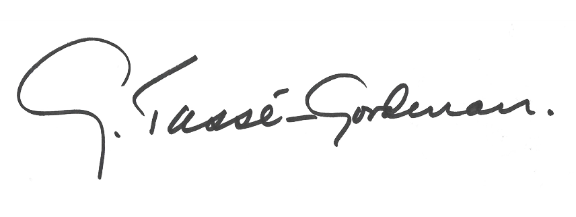 G. Tassé-Gordeman.